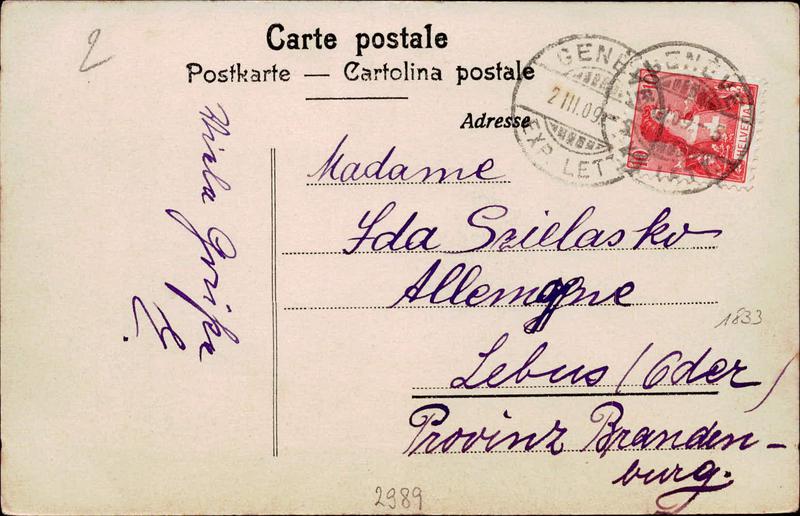 2
Carte postale
Postkarte — Cartolina postale
Adresse
GENÈVE
2 III.09
EXP. LETT
GENÈVE
HELVETIA
10
10
Viele Grüße
Madame
Ida Szielasko
Allemagne
1833
Lebus (Oder)
Provinz Branden-
burg.
2989